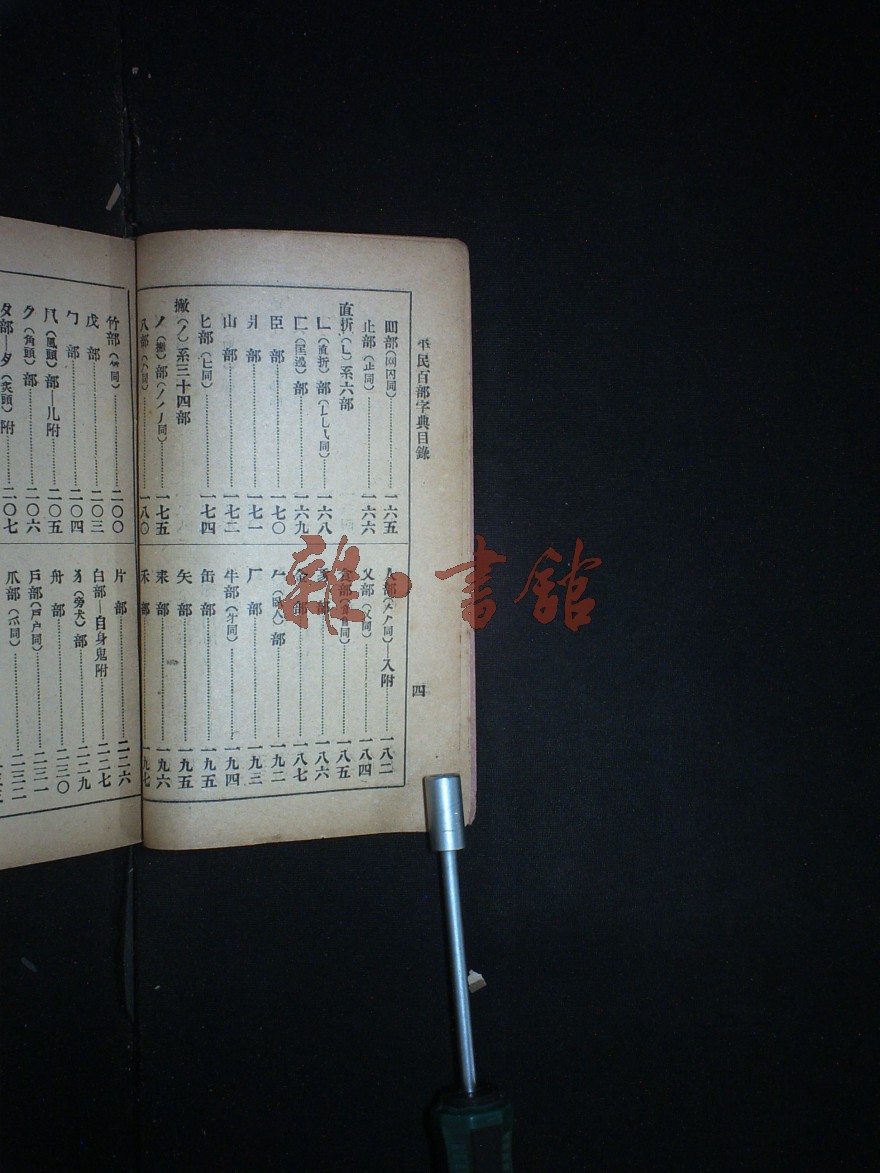 平民百部字典目錄
四
皿部(罒𦉰同)……一六五
止部(𣥂同)……一六六
直折(乚)系六部
乚(直折)部(㇄乚乁同)……一六八
匚(匡邊)部……一六九
臣部……一七〇
爿部……一七一
山部……一七二
匕部(七同)……一七四
撇(丿)系三十四部
丿(撇)部……一七五
八部……一八〇
人部……入附……一八二
乂部(又同)……一八四
食部……一八五
豸部……一八六
金部……一八七
𠂉(臥人)部……一九二
厂部……一九三
牛部(牜同)……一九四
缶部……一九五
矢部……一九五
釆部……一九六
禾部……一九七
竹部……二〇〇
戊部……二〇三
勹部……二〇四
𠘨(風頭)部—儿附……二〇五
𠂊(角頭)部……二〇六
夕部—𡗜(炙頭)附……二〇七
片部……二二六
白部—自身鬼附……二二七
犭(旁犬)部……二二九
舟部……二三〇
戶部……二三一
爪部(爫同)……二三二
雜·書館